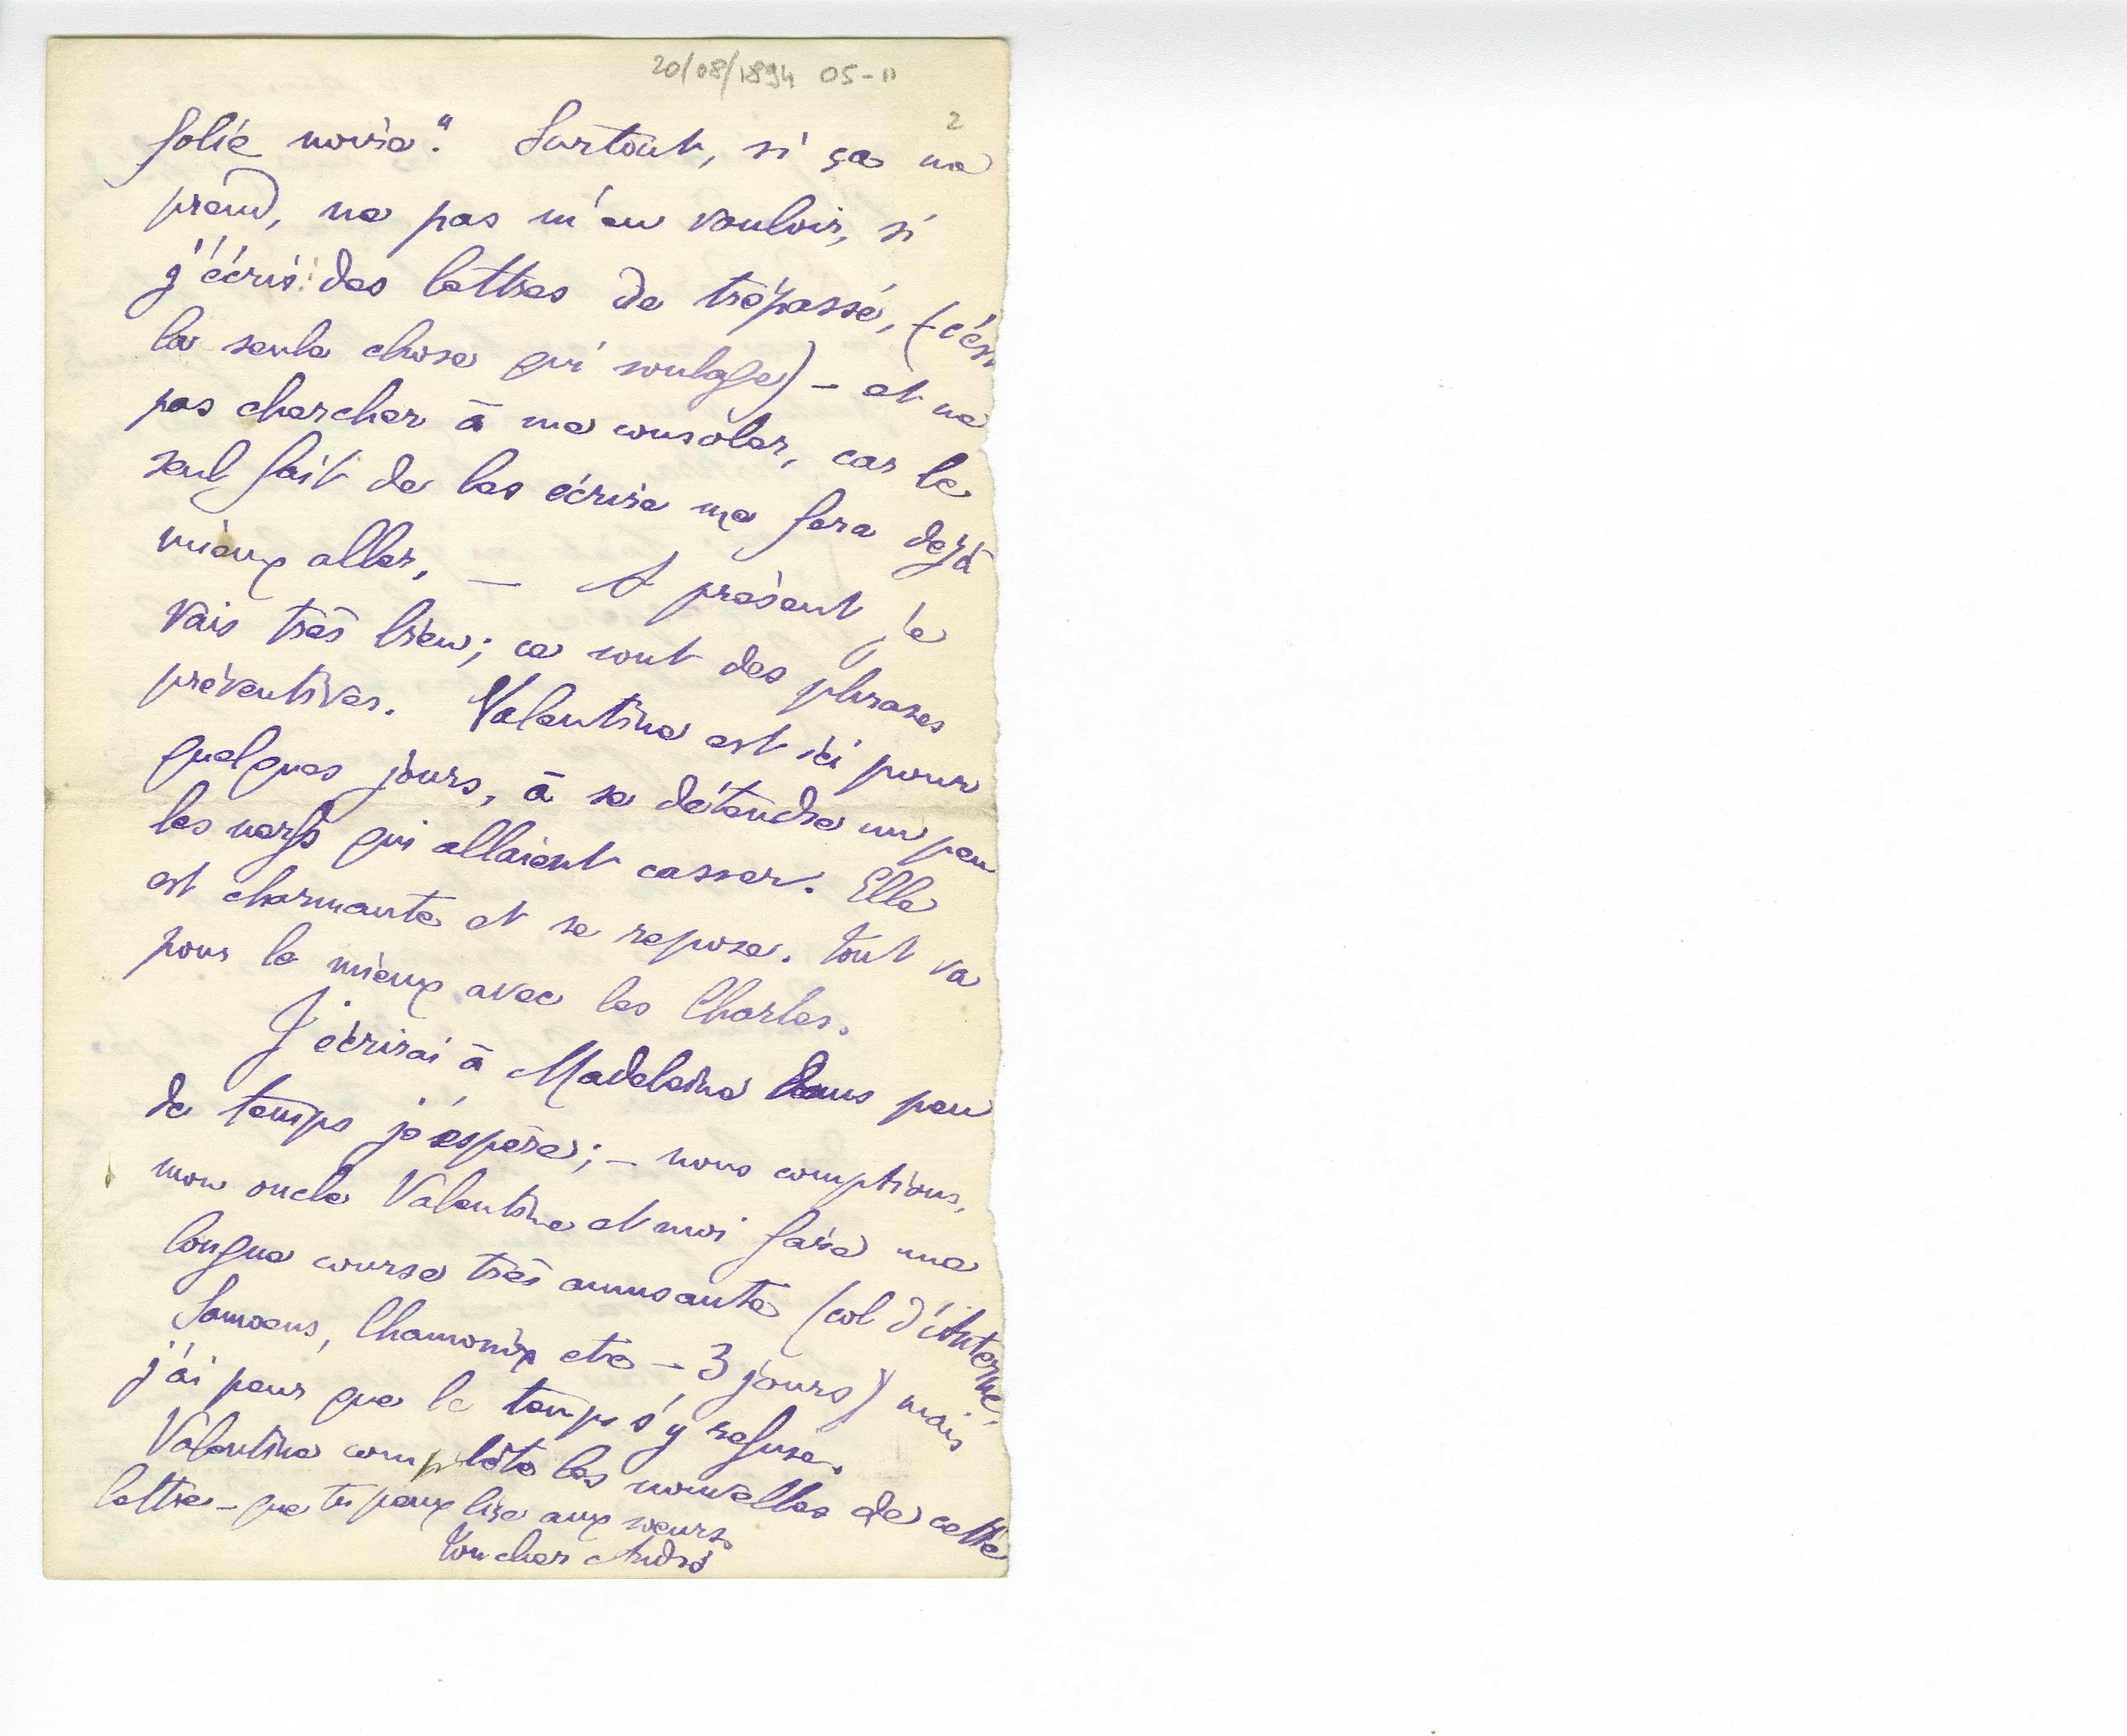 20/08/1894 05-11
2
folie noire". Surtout, si ça me
prend, ne pas m'en vouloir, si
j'écris des lettres de trépassé, (c'est
la seule chose qui soulage) – et ne
pas chercher à me consoler, car le
seul fait de les écrire me fera déjà
mieux aller, — A présent je
vais très bien; ce sont des phrases
préventives. Valentine est ici pour
quelques jours, à se détendre un peu
les nerfs qui allaient casser. Elle
est charmante et se repose. tout va
pour le mieux avec les Charles.
J'écrirai à Madeleine dans peu
de temps j'espère; – nous comptions,
mon oncle Valentine et moi faire une
longue course très amusante (col d'Anterne,
Samoens, Chamonix etc – 3 jours) mais
j'ai peur que le temps s'y refuse.
Valentine complète les nouvelles de cette
lettre – que tu peux lire aux soeurs.
Ton cher André